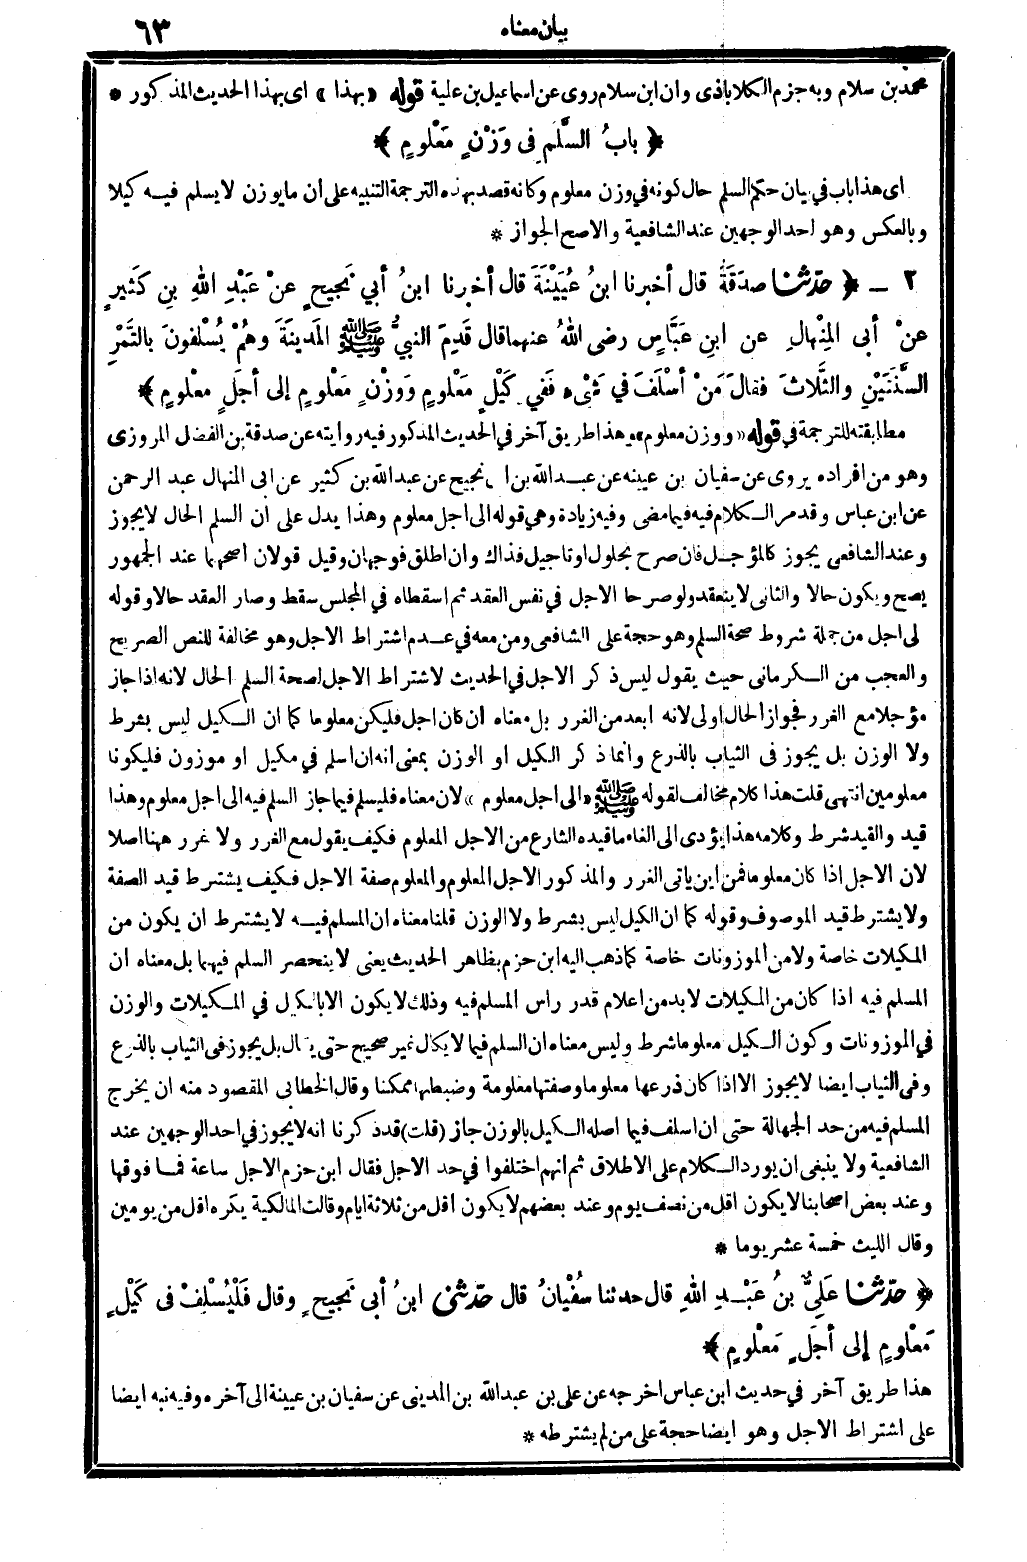 بيان معناه ٦٣
محمد بن سلام وبه جزم الكلاباذى وان ابن سلام روى عن اسماعيل بن علية قوله «بهذا» اى بهذا الحديث المذكور *
﴿ بابُ السَّلَمِ فى وَزْنٍ مَعْلومٍ ﴾
اى هذا باب في بيان حكم السلم حال كونه في وزن معلوم وكانه قصد بهذه الترجمة التنبيه على أن ما يوزن لا يسلم فيه كيلا
وبالعكس وهو احد الوجهين عند الشافعية والاصح الجواز *
٢ ـ ﴿ حدّثنا صدَقَةُ قال أخبرنا ابنُ عُيَيْنَةَ قال أخبرنا ابنُ أبي نَجيحٍ عنْ عَبْدِ اللهِ بنِ كَثيرٍ
عنْ أبى المِنْهالِ عن ابنِ عَبَّاسٍ رضى اللهُ عنهما قال قَدِمَ النبيُّ ﷺ المَدينَةَ وهُمْ يُسْلفونَ بالتَّمْرِ
السَّنَتَيْنِ والثَّلاثَ فقالَ مَنْ أسْلَفَ في شَىْءٍ فَفي كَيْلٍ مَعْلومٍ ووزْنٍ مَعْلومٍ إلى أجَلٍ معْلومٍ ﴾
مطابقته للترجمة في قوله «ووزن معلوم» هذا طريق آخر في الحديث المذكور فيه روايته عن صدقة بن الفضل المروزى
وهو من افراده يروى عن سفيان بن عيينه عن عبد الله بن ا نجيح عن عبد الله بن كثير عن ابى المنهال عبد الرحمن
عن ابن عباس وقد مر الكلام فيه فيما مضى وفيه زيادة وهي قوله الى اجل معلوم وهذا يدل على ان السلم الحال لا يجوز
وعند الشافعى يجوز كالمؤجل فان صرح بحلول او تاجيل فذاك وان اطلق فوجهان وقيل قولان اصحهما عند الجمهور
يصح ويكون حالا والثانى لا ينعقد ولو صرحا الاجل في نفس العقد ثم اسقطاه في المجلس سقط وصار العقد حالا وقوله
لى اجل من جملة شروط صحة السلم وهو حجة على الشافعى ومن معه في عدم اشتراط الاجل وهو مخالفة للنص الصريح
والعجب من الكرمانى حيث يقول ليس ذكر الاجل في الحديث لاشتراط الاجل لصحة السلم الحال لانه اذا جاز
مؤجلا مع الغرر فجواز الحال اولى لانه ابعد من الغرر بل معناه ان كان اجل فليكن معلوما كما ان الكيل ليس بشرط
ولا الوزن بل يجوز فى الثياب بالذرع وانما ذكر الكيل او الوزن بمعنى انه ان اسلم في مكيل او موزون فليكونا
معلومين انتهى قلت هذا كلام مخالف لقوله ﷺ «الى اجل معلوم» لان معناه فليسلم فيما جاز السلم فيه الى اجل معلوم وهذا
قيد والقيد شرط وكلامه هذا يؤدى الى الغاء ما قيده الشارع من الاجل المعلوم فكيف يقول مع الغرر ولا غرر ههنا اصلا
لان الاجل اذا كان معلوما فمن اين ياتى الغرر والمذكور الاجل المعلوم والمعلوم صفة الاجل فكيف يشترط قيد الصفة
ولا يشترط قيد الموصوف وقوله كما ان الكيل ليس بشرط ولا الوزن قلنا معناه ان المسلم فيه لا يشترط ان يكون من
المكيلات خاصة ولا من الموزونات خاصة كما ذهب اليه ابن حزم بظاهر الحديث يعنى لا ينحصر السلم فيهما بل معناه ان
المسلم فيه اذا كان من المكيلات لابد من اعلام قدر راس المسلم فيه وذلك لا يكون الا بالكيل في المكيلات والوزن
في الموزونات وكون الكيل معلوما شرط وليس معناه ان السلم فيما لا يكال غير صحيح حتى يقال بل يجوز فى الثياب بالذرع
وفى الثياب ايضا لا يجوز الا اذا كان ذرعها معلوما وصفتها معلومة وضبطها ممكنا وقال الخطابى المقصود منه ان يخرج
المسلم فيه من حد الجهالة حتى ان اسلف فيما اصله الكيل بالوزن جاز (قلت) قد ذكرنا انه لا يجوز في احد الوجهين عند
الشافعية ولا ينبغى ان يورد الكلام على الاطلاق ثم انهم اختلفوا في حد الاجل فقال ابن حزم الاجل ساعة فما فوقها
وعند بعض اصحابنا لا يكون اقل من نصف يوم وعند بعضهم لا يكون اقل من ثلاثة ايام وقالت المالكية يكره اقل من يومين
وقال الليث خمسة عشر يوما *
﴿ حدّثنا عَلِيُّ بنُ عَبْدِ اللهِ قال حدثنا سُفْيانُ قال حدّثنى ابنُ أبى نَجيحٍ وقال فَلْيُسْلِفْ فى كَيْلٍ
مَعْلومٍ إلى أجَلٍ مَعْلومٍ ﴾
هذا طريق آخر في حديث ابن عباس اخرجه عن على بن عبد الله بن المدينى عن سفيان بن عيينة الى آخره وفيه نبه ايضا
على اشتراط الاجل وهو ايضا حجة على من لم يشترطه *